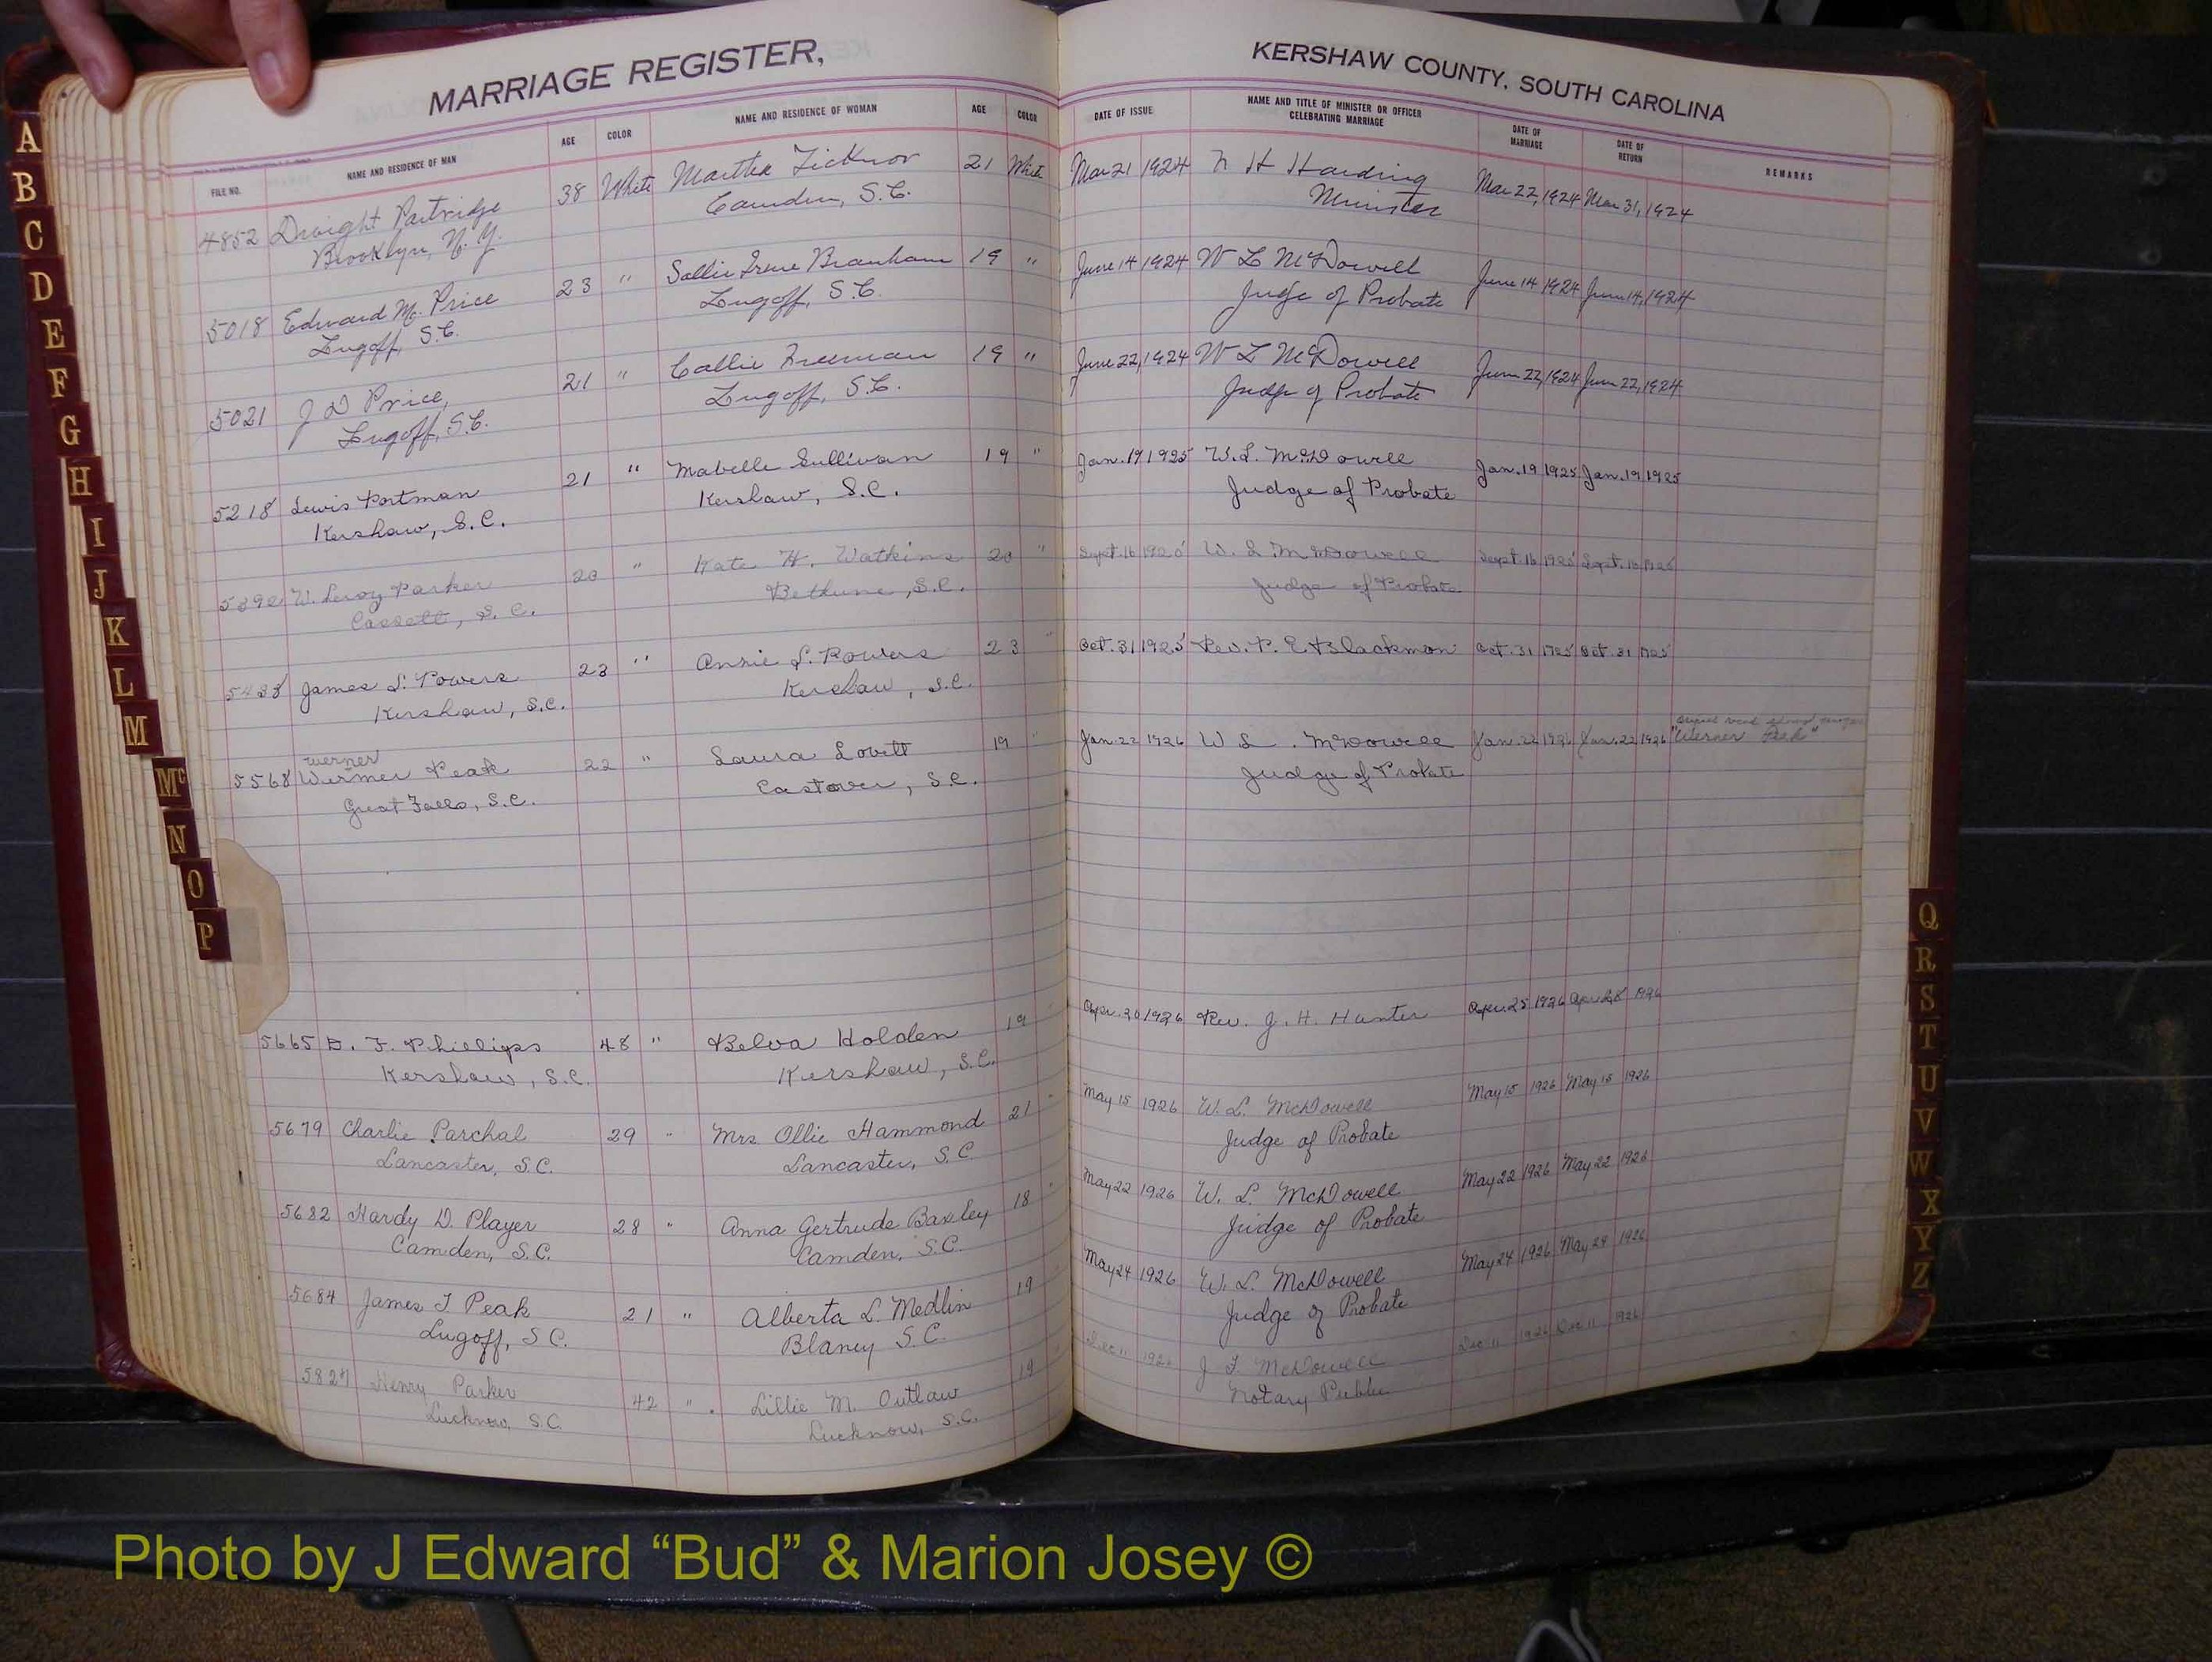 MARRIAGE REGISTER,
KERSHAW COUNTY, SOUTH CAROLINA
FILE NO. NAME AND RESIDENCE OF MAN AGE COLOR NAME AND RESIDENCE OF WOMAN AGE COLOR DATE OF ISSUE NAME AND TITLE OF MINISTER OR OFFICER CELEBRATING MARRIAGE DATE OF MARRIAGE DATE OF RETURN REMARKS
4852 Dwight Partridge 38 White Martha Ticknor 21 White Mar 21 1924 H Harding Mar 22, 1924 Mar 31, 1924
Brooklyn, N.Y. Camden, S.C. Minister
5018 Edward M. Price 23 " Sallie Irene Branham 19 " June 14 1924 W L McDowell June 14 1924 June 14, 1924
Lugoff, S.C. Lugoff, S.C. Judge of Probate
5021 J D Price, 21 " Callie Freeman 19 " June 22, 1924 W L McDowell June 22, 1924 June 22, 1924
Lugoff, S.C. Lugoff, S.C. Judge of Probate
5218 Lewis Portman 21 " Mabelle Sullivan 19 " Jan. 19 1925 W.L. McDowell Jan. 19 1925 Jan. 19 1925
Kershaw, S.C. Kershaw, S.C. Judge of Probate
5392 W. Leroy Parker 20 " Kate H. Watkins 20 " Sept. 16 1925 W. L McDowell Sept. 16 1925 Sept. 16 1925
Cassett, S.C. Bethune, S.C. Judge of Probate
James L. Powers 23 " Annie L. Powers 23 " Oct. 31 1925 Rev. P. E. Blackmon Oct. 31 1925 Oct. 31 1925
Kershaw, S.C. Kershaw, S.C.
Werner
5568 Wermer Peak 22 " Laura Lovett 19 " Jan. 22 1926 W L. McDowell Jan. 22 1926 Jan. 22 1926 "Werner Peak"
Great Falls, S.C. Eastover, S.C. Judge of Probate
5665 F. Phillips 48 " Belva Holden 19 " Apr. 20 1926 Rev. J. H. Hunter Apr. 25 1926 Apr. 28 1926
Kershaw, S.C. Kershaw, S.C.
5679 Charlie Parchal 29 " Mrs. Ollie Hammond 21 " May 15 1926 W. L. McDowell May 15 1926 May 15 1926
Lancaster, S.C. Lancaster, S.C. Judge of Probate
5682 Hardy D. Player 28 " Anna Gertrude Baxley 18 " May 22 1926 W. L. McDowell May 22 1926 May 22 1926
Camden, S.C. Camden, S.C. Judge of Probate
5684 James T Peak 21 " Alberta L. Medlin 19 " May 24 1926 W. L. McDowell May 24 1926 May 24 1926
Lugoff, S.C. Blaney S.C. Judge of Probate
5827 Henry Parker 42 " Lillie M. Outlaw 19 " Dec 11 1926 J. McDowell Dec 11 1926 Dec 11 1926
Lucknow, S.C. Lucknow, S.C. Notary Public
A
B
C
D
E
F
G
H
I
J
K
L
M
Mc
N
O
P
Q
R
S
T
U
V
W
X
Y
Z
Photo by J Edward “Bud” & Marion Josey ©